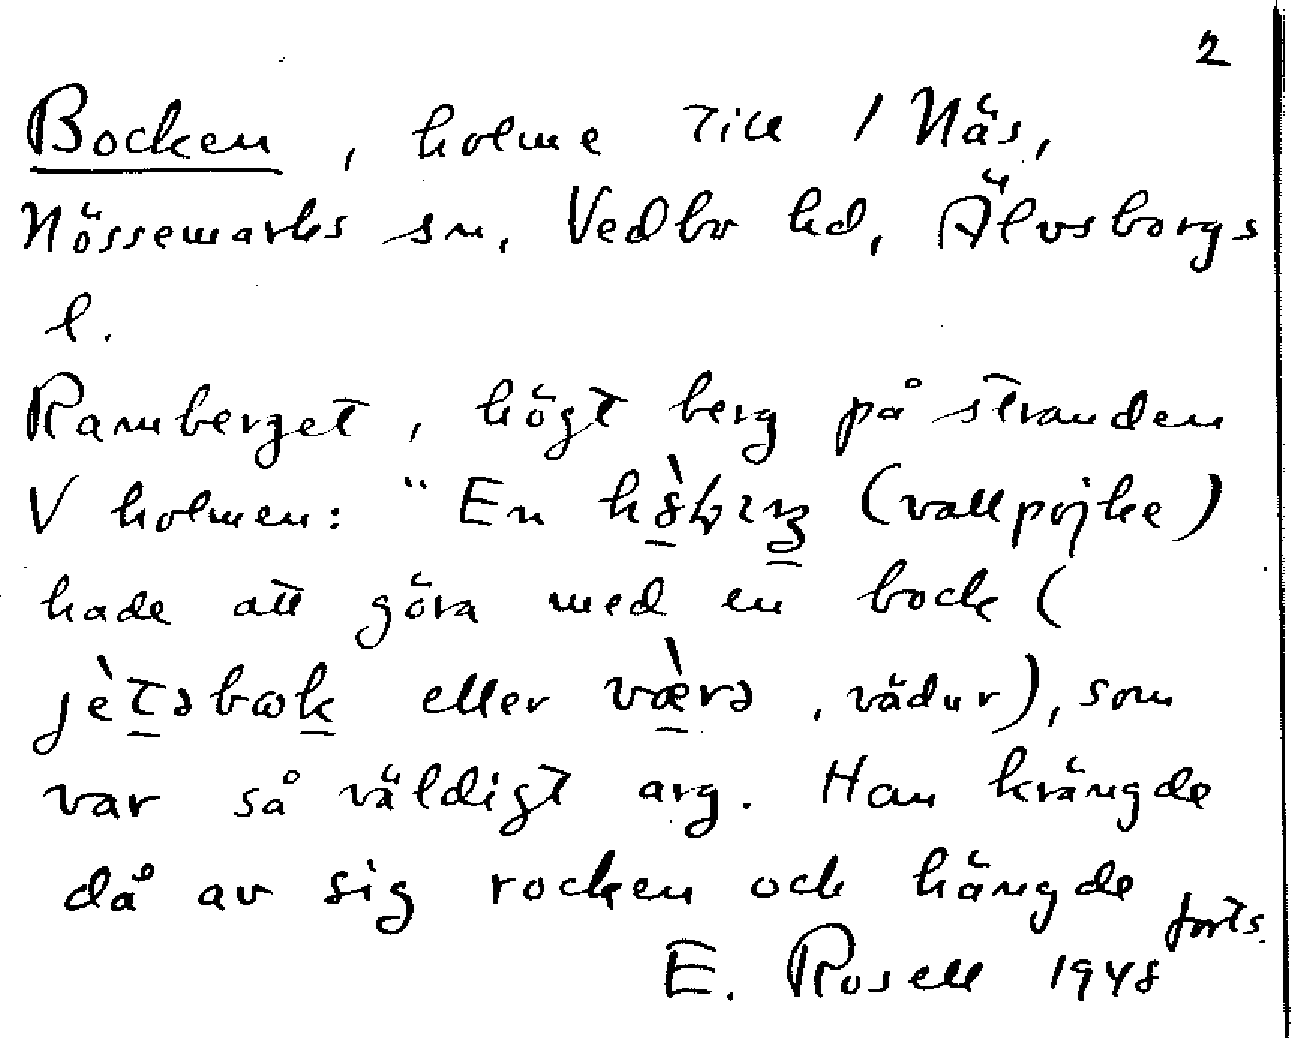 2
Bocken, holme till 1 Näs,
Nössemarks sn, Vedbo hd, Älvsborgs
l.
Ramberget, högt berg på stranden
V holmen: "En (vallpojke)
hade att göra med en bock (
jètəbɷk eller væ̀rə, vädur), som
var så väldigt arg. Han krängde
då av sig rocken och hängde
forts.
E. Rosell 1948